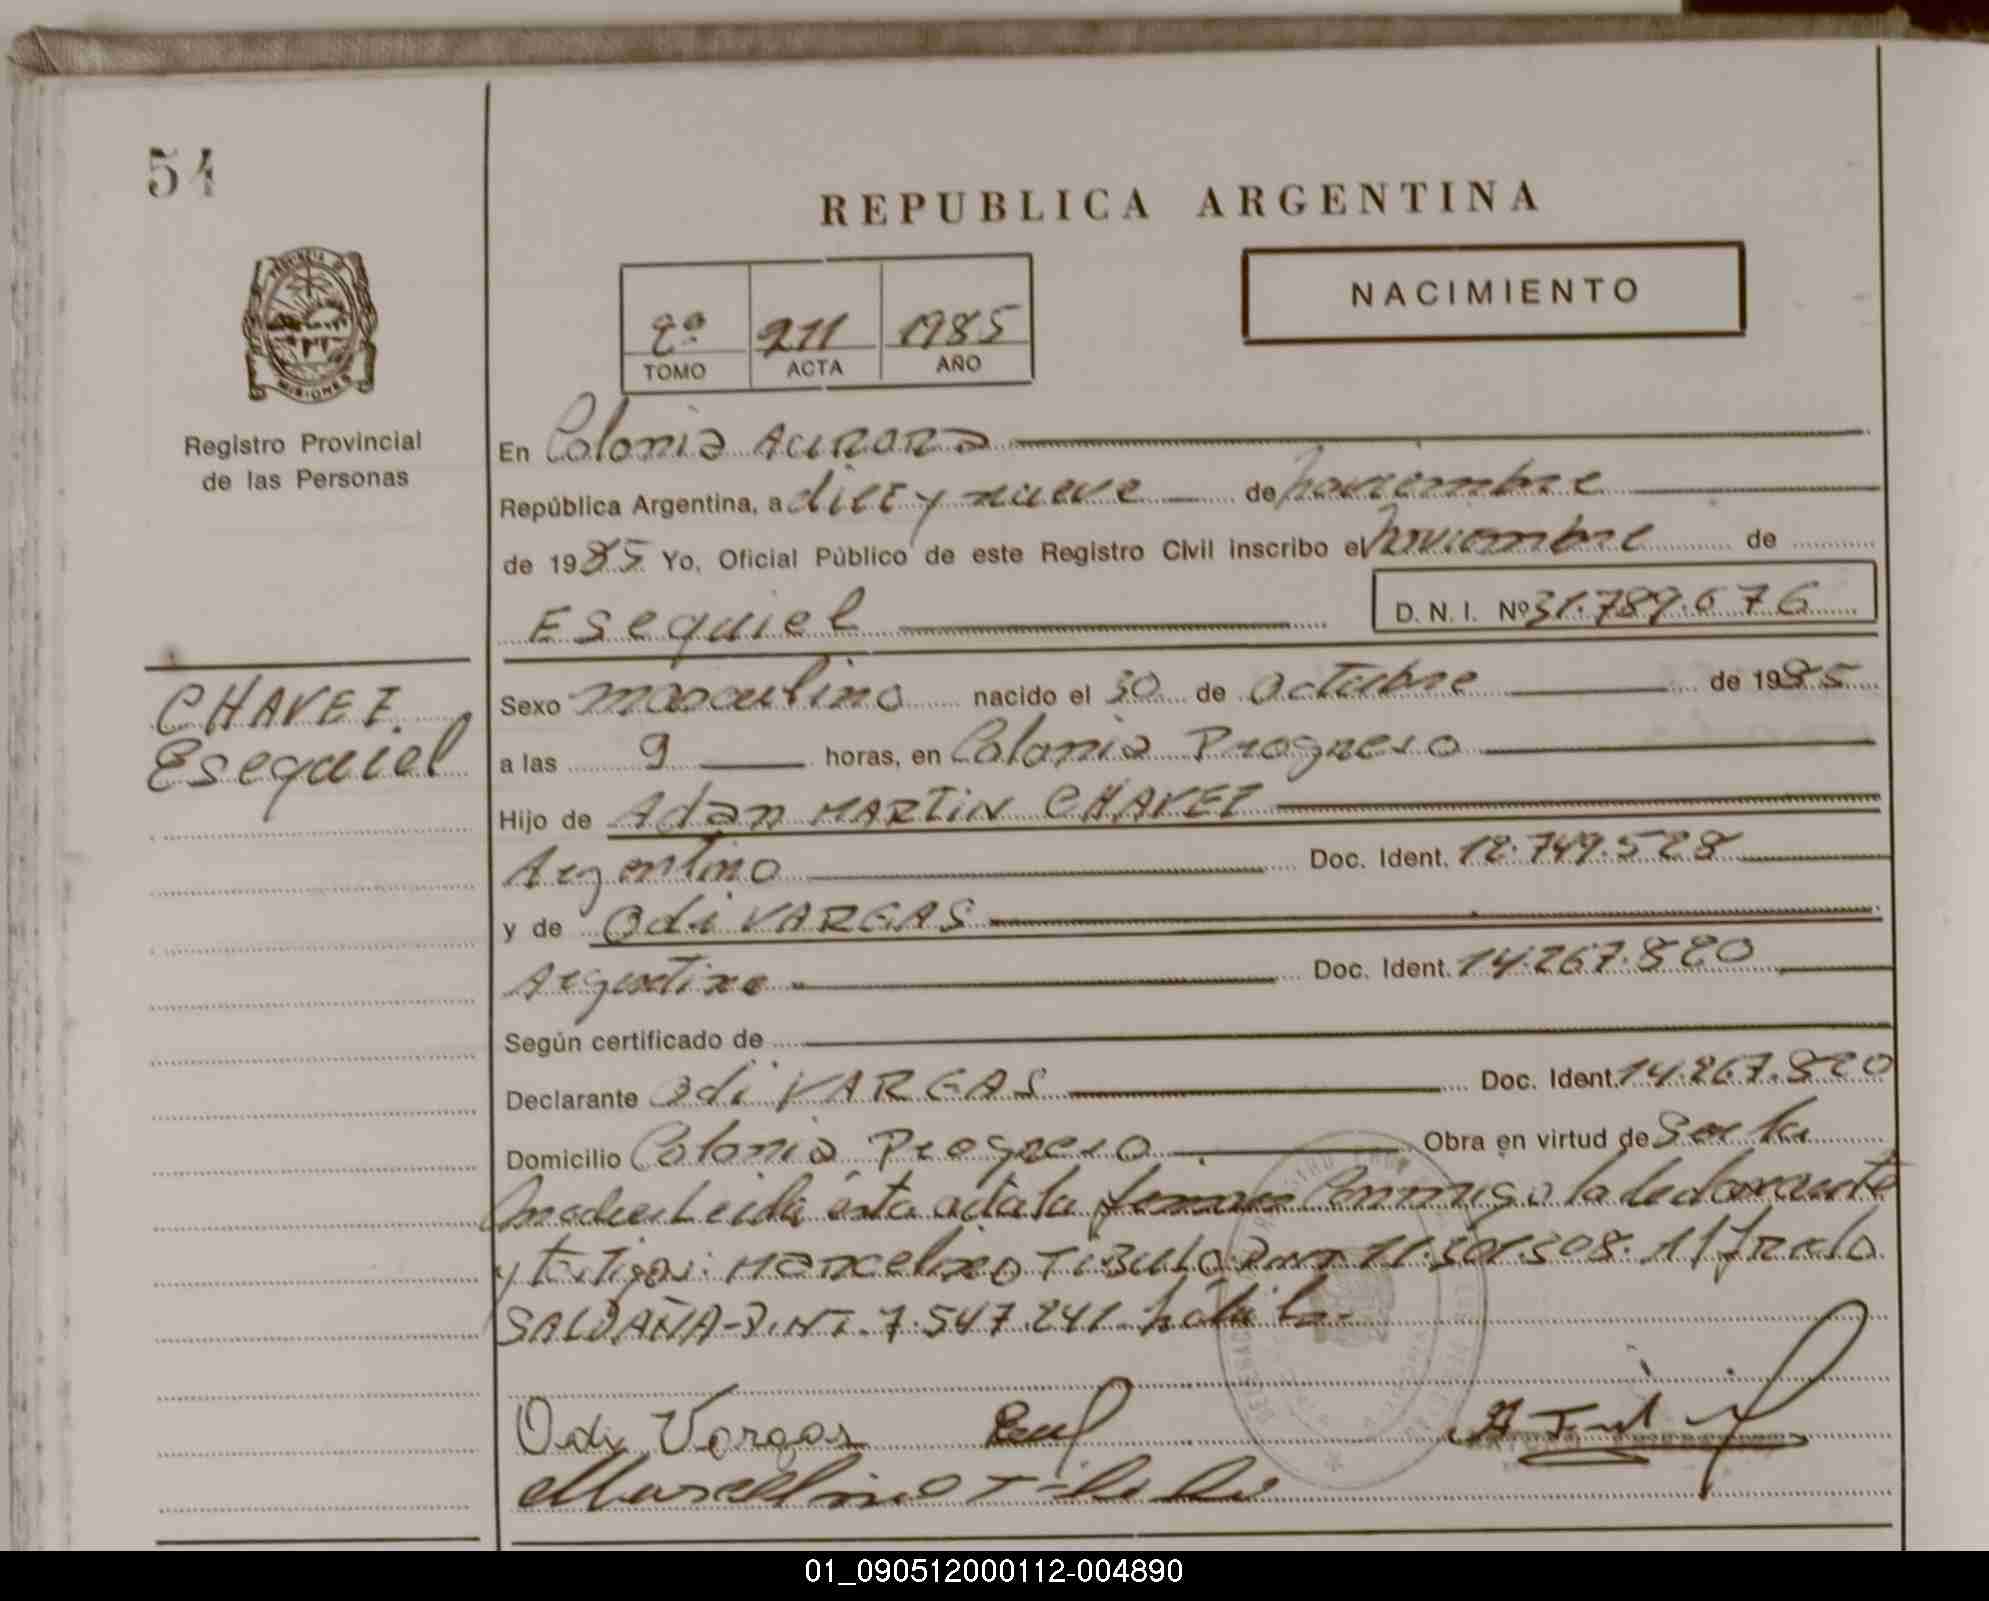 54
REPUBLICA ARGENTINA
NACIMIENTO
2º 211 1985
TOMO ACTA AÑO
PROVINCIA DE
MISIONES
Registro Provincial
de las Personas
En Colonia AURORA
República Argentina, a diez y nueve de noviembre
de 1985 Yo, Oficial Público de este Registro Civil inscribo el noviembre de
Esequiel D. N. I. Nº 31.789.676
CHAVEZ
Esequiel
Sexo masculino nacido el 30 de octubre de 1985
a las 9 horas, en Colonia Progreso
Hijo de Adan MARTIN CHAVEZ
Argentino Doc. Ident. 12.749.528
y de Odi VARGAS
Argentina Doc. Ident. 14.267.820
Según certificado de
Declarante Odi VARGAS Doc. Ident. 14.267.820
Domicilio Colonia Progreso Obra en virtud de Ser la
madre. Leida esta acta la firman Conmigo la declarante
y testigos: Marcelino TIZULO D.N.I. 11.301.308. Alfredo
SALDAÑA-D.N.I. 7.547.241. hábiles-
Odi Vargas
Marcellino
01_090512000112-004890